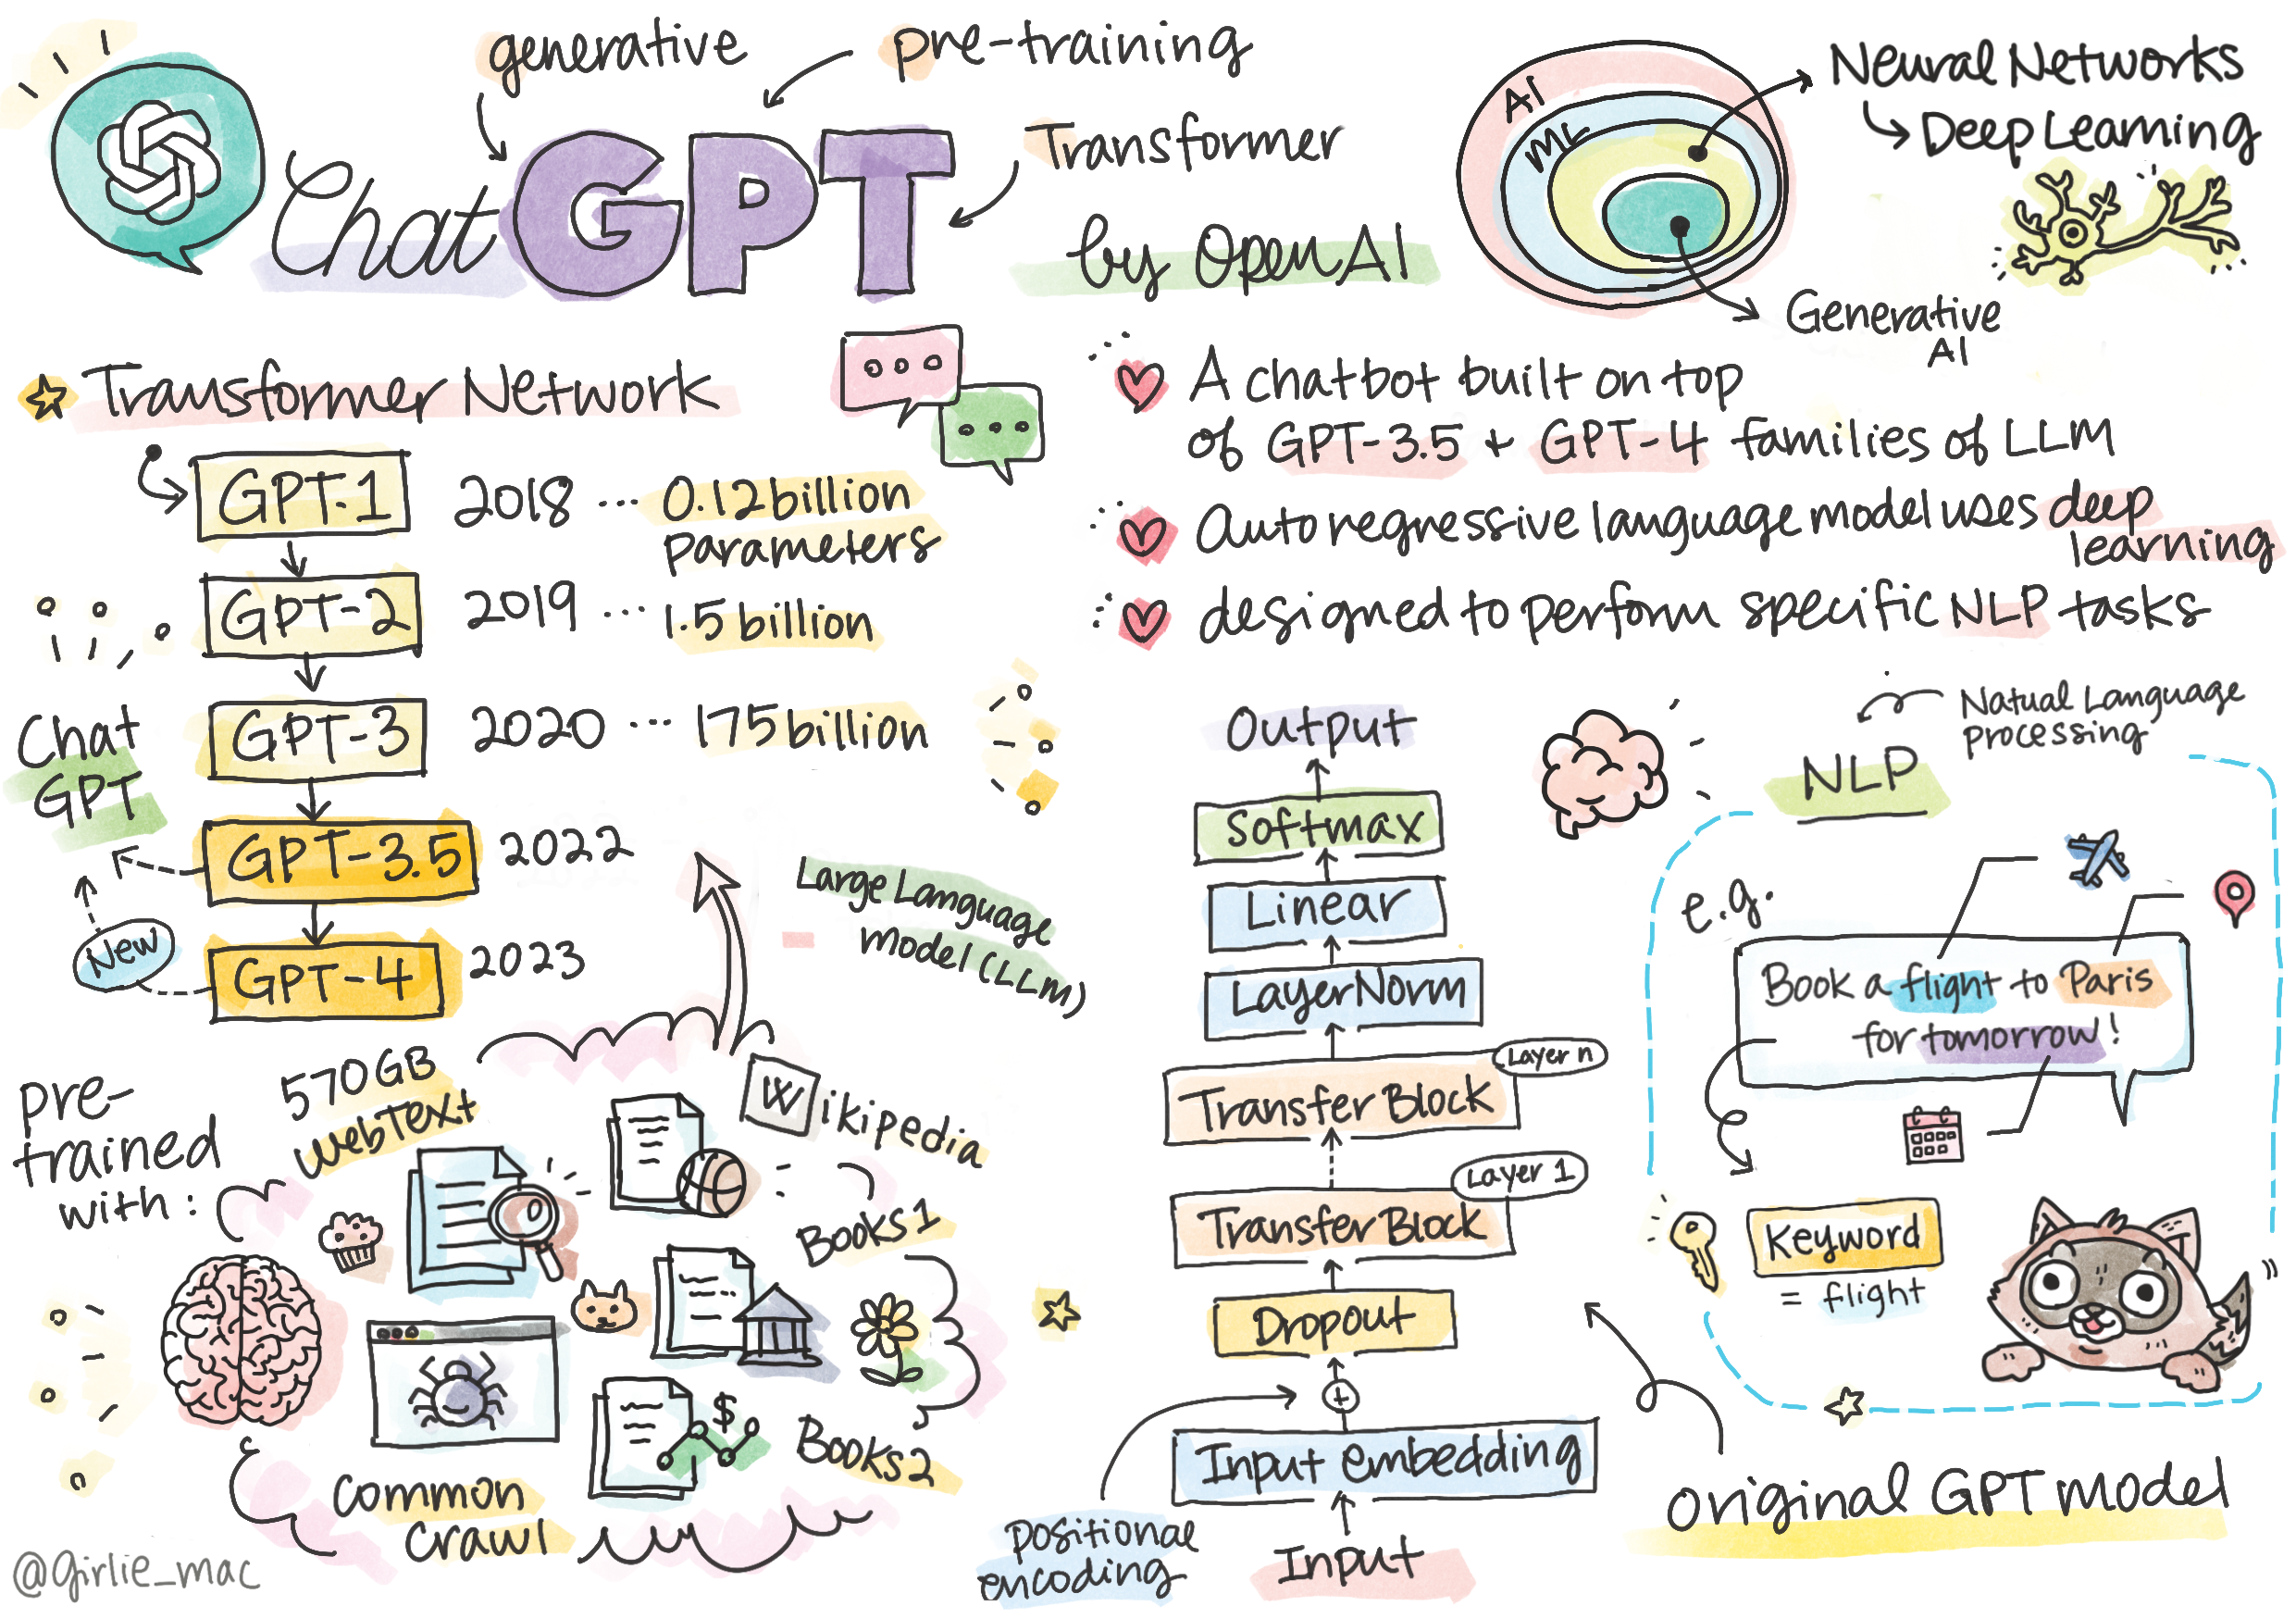 generative
pre-training
Transformer
Chat GPT
by OpenAI
AI
ML
Neural Networks
Deep Learning
Generative
AI
Transformer Network
GPT-1 2018 ... 0.12 billion
parameters
GPT-2 2019 ... 1.5 billion
GPT-3 2020 ... 175 billion
Chat
GPT
GPT-3.5 2022
New
GPT-4 2023
Large Language
Model (LLM)
A chatbot built on top
of GPT-3.5 + GPT-4 families of LLM
Auto regressive language model uses deep
learning
designed to perform specific NLP tasks
pre-
trained
with:
570GB
WebText
Wikipedia
W
Books 1
$
Books 2
Common
Crawl
@girlie_mac
Output
Softmax
Linear
LayerNorm
Layer n
Transfer Block
Layer 1
Transfer Block
Dropout
+
Input embedding
positional
encoding
Input
Natual Language
processing
NLP
e.g.
Book a flight to Paris
for tomorrow!
Keyword
= flight
original GPT model